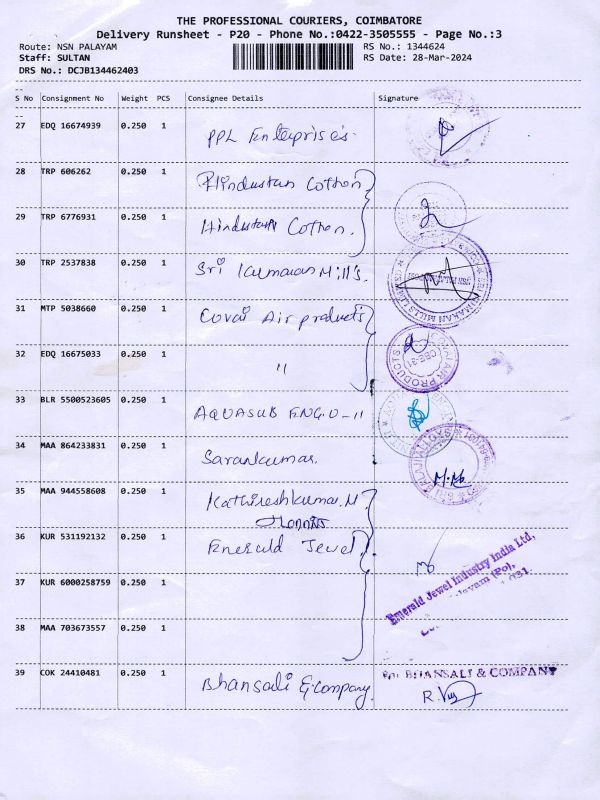 THE PROFESSIONAL COURIERS, COIMBATORE
Delivery Runsheet - P20 - Phone No.:0422-3505555 - Page No.:3
Route: NSN PALAYAM RS No.: 1344624
Staff: SULTAN RS Date: 28-Mar-2024
DRS No.: DCJB134462403
S No Consignment No Weight PCS Consignee Details Signature
27 EDQ 16674939 0.250 1 PPL Enterprises
28 TRP 606262 0.250 1 Hindustan Cotton
29 TRP 6776931 0.250 1 Hindustan Cotton.
30 TRP 2537838 0.250 1 Sri Kumaran Mills.
31 MTP 5038660 0.250 1 Covai Air products
COVAI AIR PRODUCTS
CBE-31
32 EDQ 16675033 0.250 1 "
33 BLR 5500523605 0.250 1 AQUASUB ENG.U-II
34 MAA 864233831 0.250 1 Sarankumar.
35 MAA 944558608 0.250 1 Kathireshkumar.M.
36 KUR 531192132 0.250 1 Emerald Jewel
Emerald Jewel Industry India Ltd,
37 KUR 6000258759 0.250 1
38 MAA 703673557 0.250 1
39 COK 24410481 0.250 1 Bhansali & Company.
BHANSALI & COMPANY